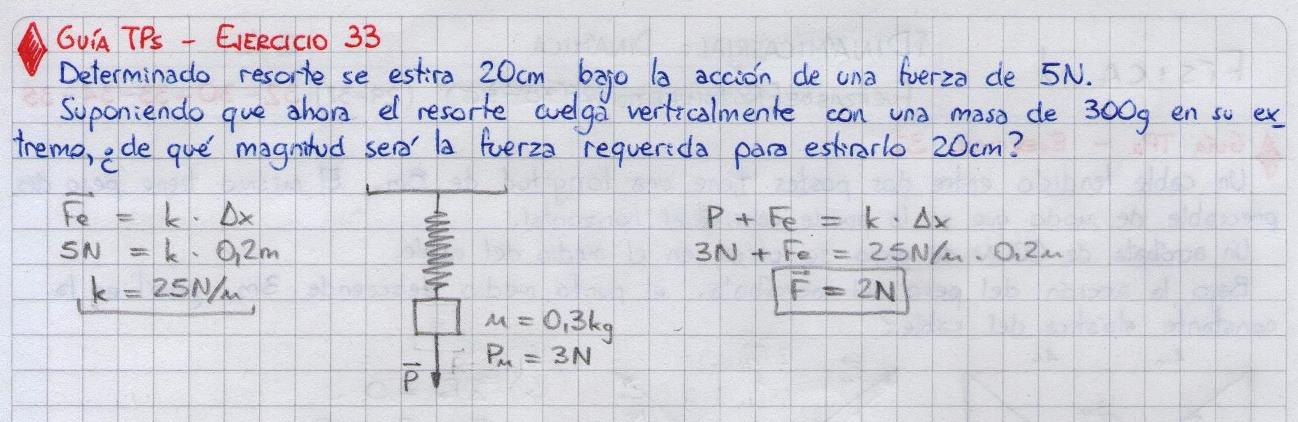 GUÍA TPs - EJERCICIO 33
Determinado resorte se estira 20cm bajo la acción de una fuerza de 5N.
Suponiendo que ahora el resorte cuelga verticalmente con una masa de 300g en su ex
tremo, ¿de qué magnitud será la fuerza requerida para estirarlo 20cm?
Fe = k · Δx
5N = k · 0,2m
k = 25N/m
m = 0,3kg
Pm = 3N
P
P + Fe = k · Δx
3N + Fe = 25N/m . 0,2m
F = 2N